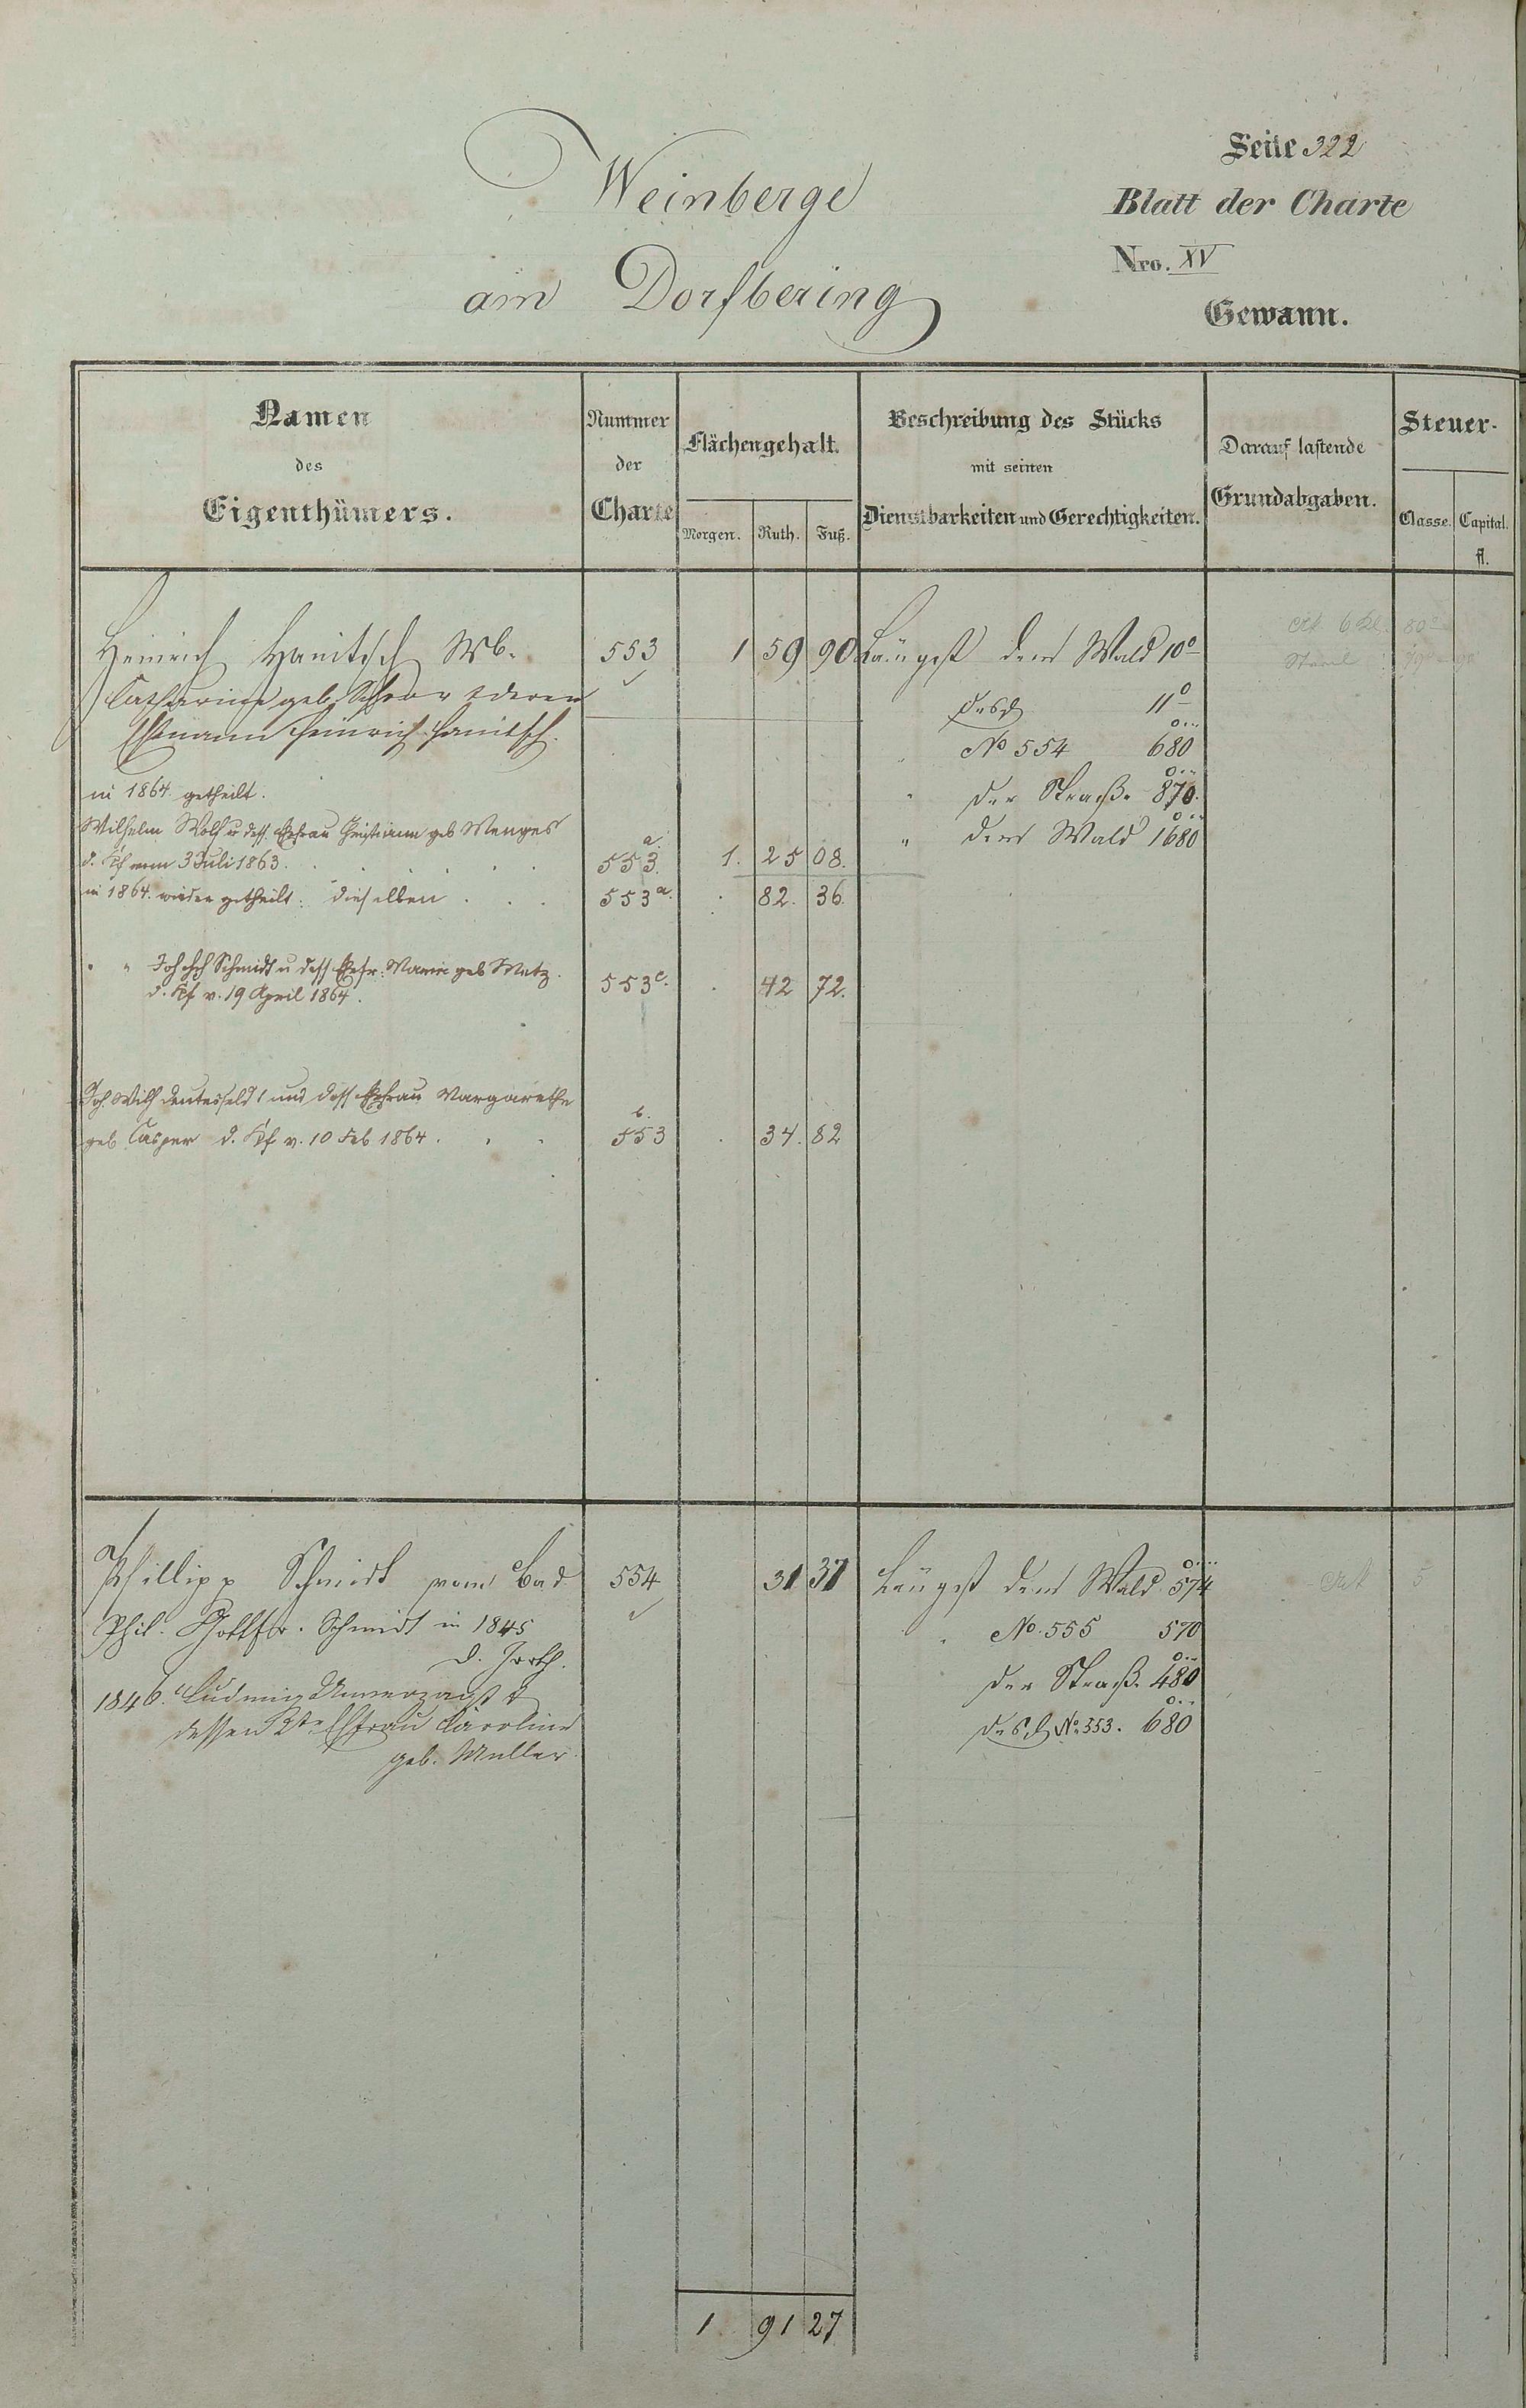 Seite 322
Weinberge
Blatt der Charte
Nro. XV
am Dorfbering
Gewann.
Namen des Eigenthümers.
Nummer der Charte
Flächengehalt.
Morgen. Ruth. Fuß.
Beschreibung des Stücks mit seinen Dienstbarkeiten und Gerechtigkeiten.
Darauf lastende Grundabgaben.
Steuer-
Classe. Capital. fl.
Heinrich Hanitsch Wb. 553 1 59 90 Längst dem Wald 10°
Catharine geb. deren desgl 11°
Ehemann Heinrich Hanitsch. " No 554 680
in 1864 getheilt. " der Straße 870.
Wilhelm Wolf u dess. Ehefrau Christiane geb Menges " dem Wald 1680
d. Kf vom 3 Juli 1863. 553.a 1. 25 08.
in 1864. wieder getheilt: dieselben . . . 553a. . 82. 36.
" " Joh Schmidt u dess Ehefr: Marie geb Metz.
d. Kf v. 19 April 1864. 553c. . 42 72.
Joh. Wilh Deutesfeld und dess Ehefrau Margarethe
geb. Casper d. Kf v. 10 Feb 1864. 553b . 34. 82
Phillipp Schmidt vom Bad 554 31 37 Längst dem Wald 574
Phil. Gottfr. Schmidt in 1845 " No. 555 570
d. der Straße 480
1846. Ludwig Unverzagt & desgl No. 553. 680
dessen Ehefrau Caroline
geb. Müller.
1 91 27